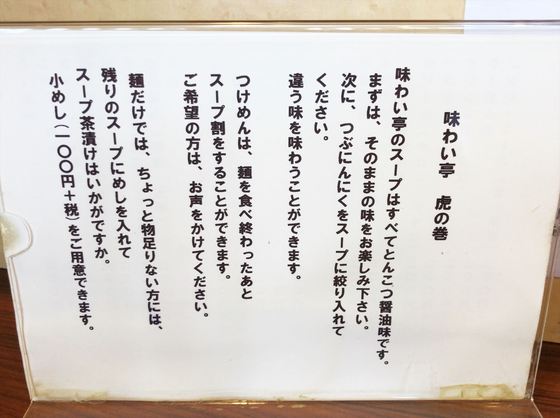 味わい亭　虎の巻
味わい亭のスープはすべてとんこつ醤油味です。
まずは、そのままの味をお楽しみ下さい。
次に、つぶにんにくをスープに絞り入れて
ください。
違う味を味わうことができます。
つけめんは、麺を食べ終わったあと
スープ割をすることができます。
ご希望の方は、お声をかけてください。
麺だけでは、ちょっと物足りない方には、
残りのスープにめしを入れて
スープ茶漬けはいかがですか。
小めし（一〇〇円＋税）をご用意できます。